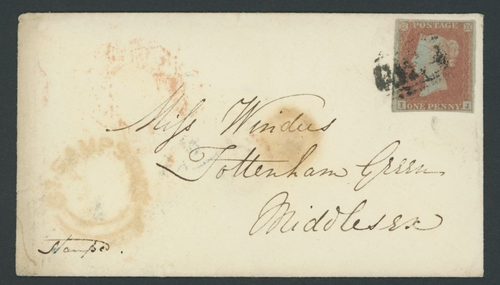 POSTAGE
ONE PENNY
Miss Windus
Tottenham Green
Middlesex
Stamped.